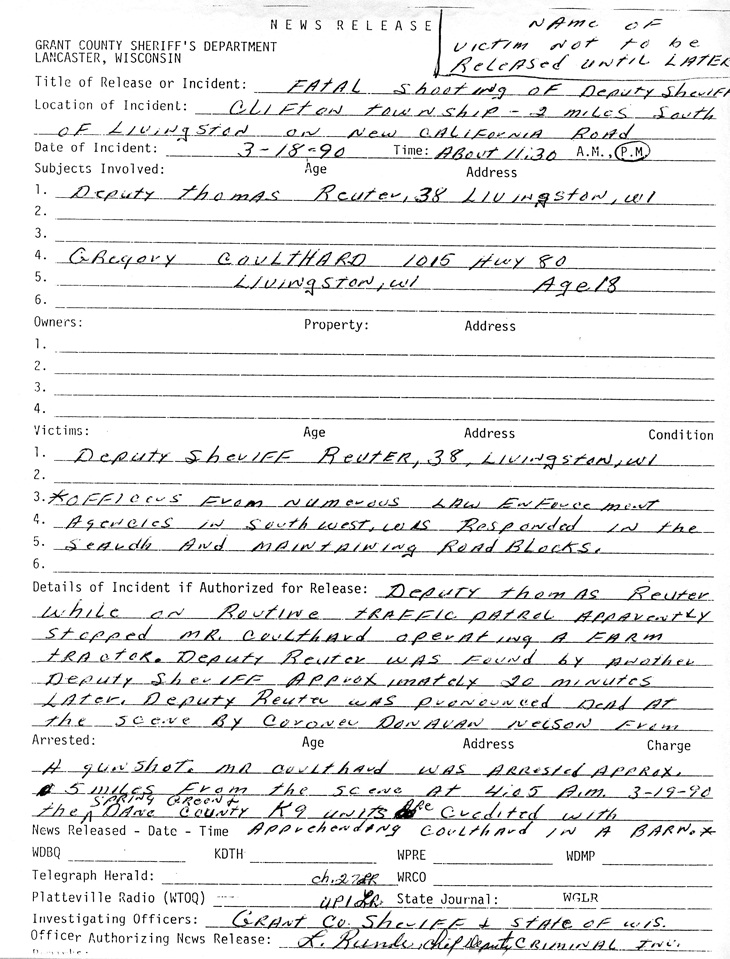 NEWS RELEASE
NAME OF
VICTIM NOT TO BE
RELEASED UNTIL LATER
GRANT COUNTY SHERIFF'S DEPARTMENT
LANCASTER, WISCONSIN
Title of Release or Incident: FATAL SHOOTING OF DEPUTY SHERIFF
Location of Incident: CLIFTON TOWNSHIP - 2 MILES SOUTH
OF LIVINGSTON ON NEW CALIFORNIA ROAD
Date of Incident: 3-18-90 Time: ABOUT 11:30 A.M., P.M
Subjects Involved: Age Address
1. DEPUTY THOMAS REUTER, 38 LIVINGSTON, WI
2.
3.
4. GREGORY COULTHARD 1015 HWY 80
5. LIVINGSTON, WI Age 18
6.
Owners: Property: Address
1.
2.
3.
4.
Victims: Age Address Condition
1. DEPUTY SHERIFF REUTER, 38, LIVINGSTON, WI
2.
3. *OFFICERS FROM NUMEROUS LAW ENFORCEMENT
4. AGENCIES IN SOUTHWEST, WIS RESPONDED IN THE
5. SEARCH AND MAINTAINING ROAD BLOCKS.
6.
Details of Incident if Authorized for Release: DEPUTY THOMAS REUTER
WHILE ON ROUTINE TRAFFIC PATROL APPARENTLY
STOPPED MR. COULTHARD OPERATING A FARM
TRACTOR. DEPUTY REUTER WAS FOUND BY ANOTHER
DEPUTY SHERIFF APPROXIMATELY 20 MINUTES
LATER. DEPUTY REUTER WAS PRONOUNCED DEAD AT
THE SCENE BY CORONER DONAVAN NELSON FROM
Arrested: Age Address Charge
A GUNSHOT. MR COULTHARD WAS ARRESTED APPROX.
5 MILES FROM THE SCENE AT 4:05 A.M. 3-19-90
SPRING GREEN +
THE DANE COUNTY K9 UNITS ARE CREDITED WITH
News Released - Date - Time APPREHENDING COULTHARD IN A BARN *
WDBQ KDTH WPRE WDMP
Telegraph Herald: ch.27 LR WRCO
Platteville Radio (WTOQ) UPI LR State Journal: WGLR
Investigating Officers: GRANT CO. SHERIFF & STATE OF WIS.
Officer Authorizing News Release: L. Runde, Chief Deputy CRIMINAL INV.